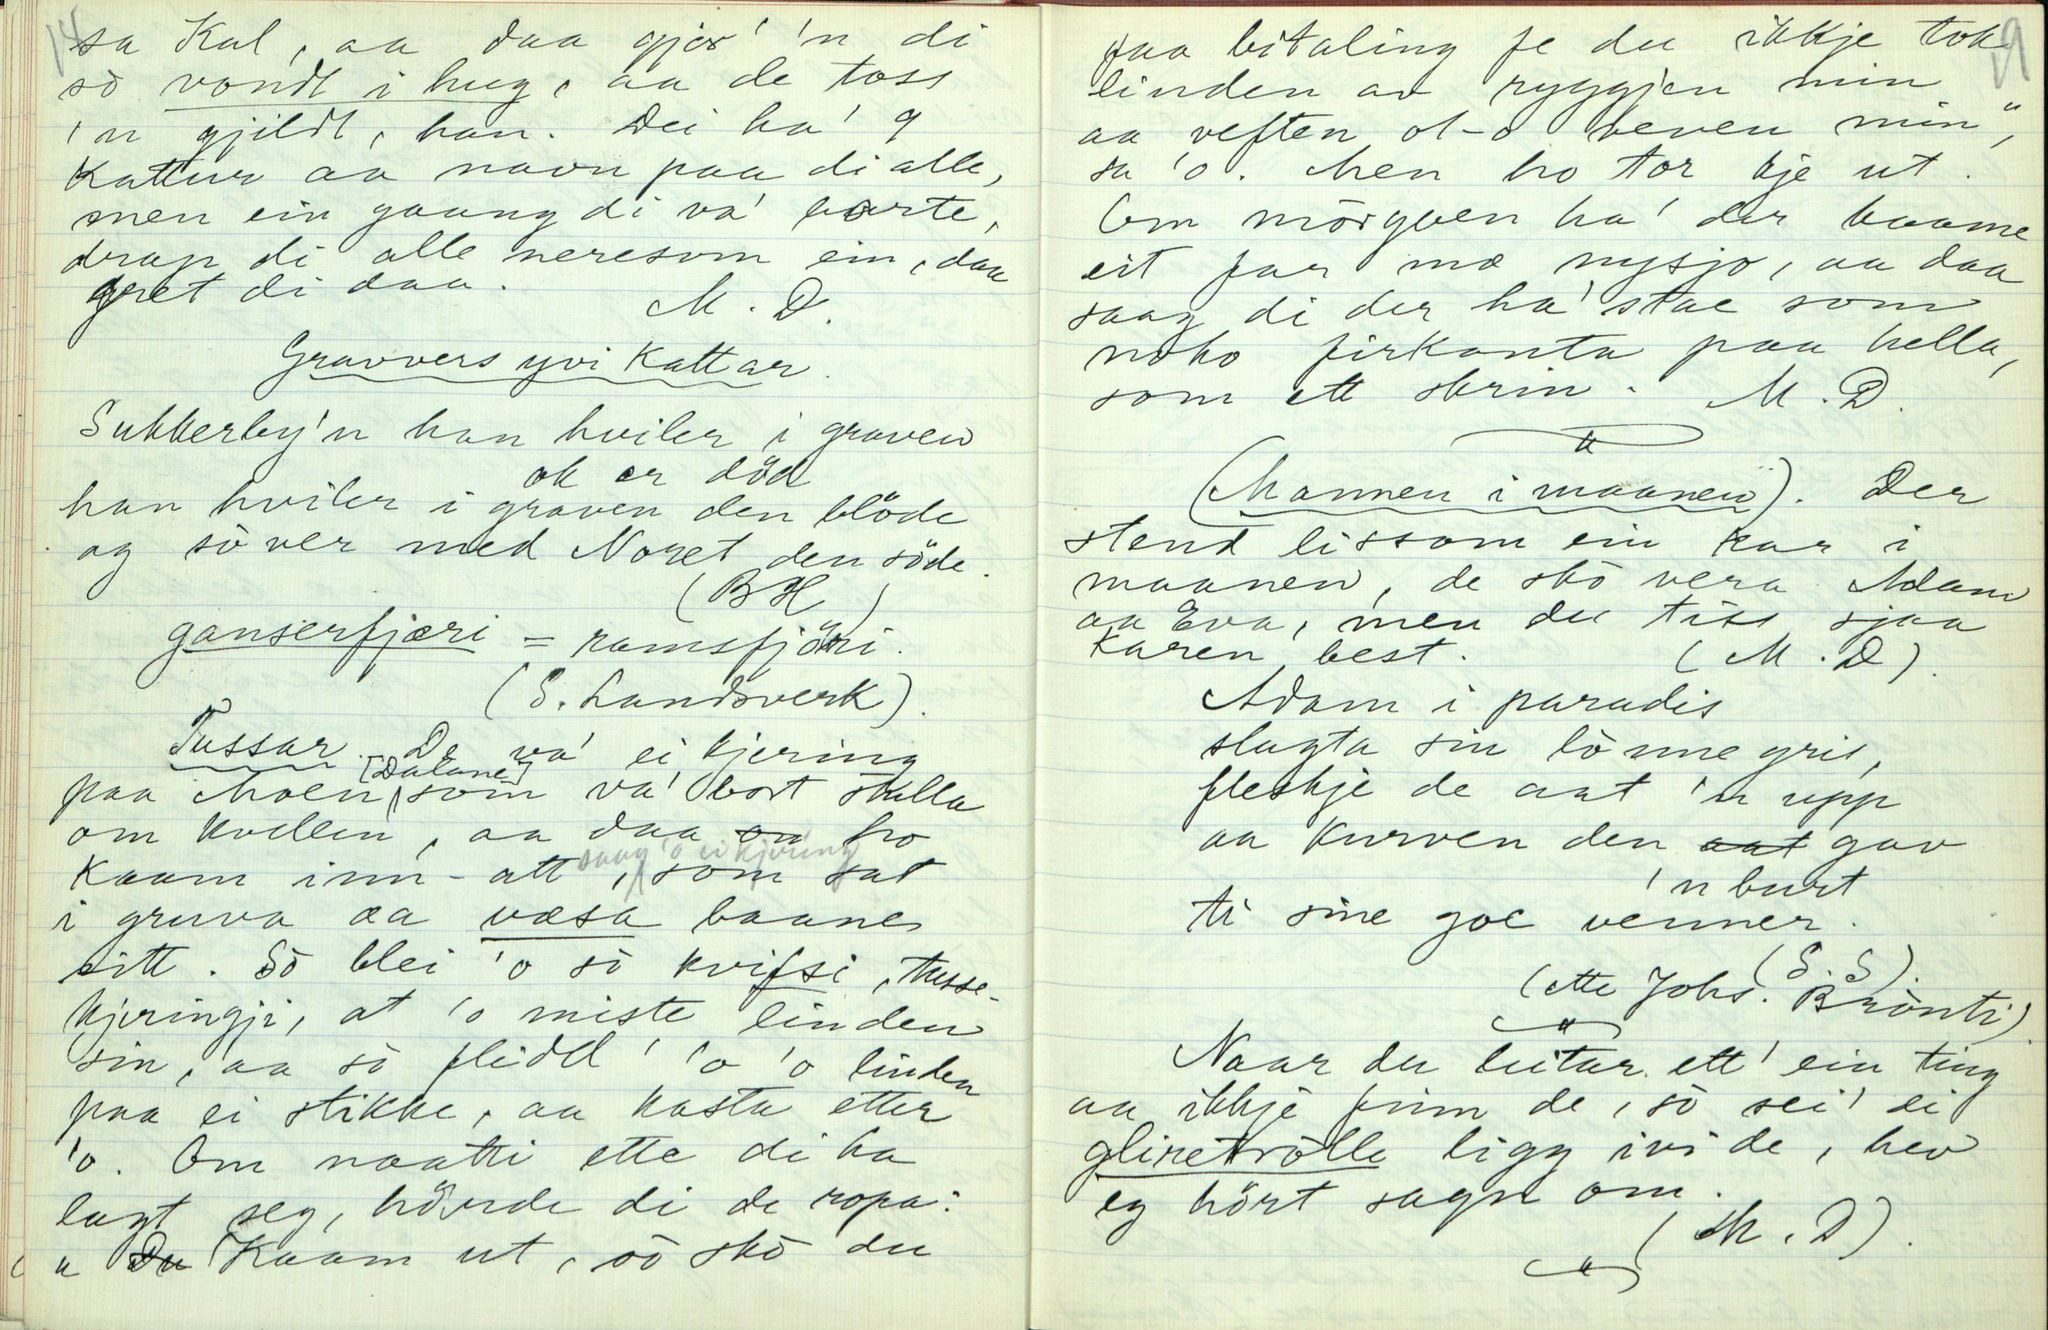 14
sa Kal, aa daa gjer' 'n di
så vondt i hug, aa de toss
'n gjildt, han. Dei ha' 9
Kattur aa navn paa di alle,
men ein gaang di va' borte,
drap di alle neresom ein, daa
gret di daa.
M. D.
Gravvers yvi Kattar.
Sukkerby'n han hviler i graven
ok er död
han hviler i graven den blöde
og söver med Noret den söde.
(B H)
ganserfjæri = ramsfjöri.
(S. Landsverk).
Tussar. De va' ei kjering
paa Moen [Dalane] som va' bort stulla
om kvellen, aa daa ho
kaam inn-att saag 'o ei kjering, som sat
i gruva aa væsa baane
sitt. Sò blei 'o sò kvifsi, tusse-
kjeringji, at 'o miste linden
sin, aa sò flidd' 'o 'o linden
paa ei stikke, aa kasta etter
'o. Om naatti ette di ha
lagt seg, hörde di de ropa:
" Du Kaam ut, sò skò du
9
faa bitaling fe du ikkje tok
linden av ryggjen min
aa veften ot-o veven min",
sa 'o. Men ho tor kje ut.
Om mòrgoen ha' der kaame
eit far mæ nysjo, aa daa
saag di der ha' stae som
noko firkanta paa hella,
som ett skrin. M. D.
"
(Mannen i maanen). Der
stend lissom ein kar i
maanen, de skò vera Adam
aa Eva, men du tiss sjaa
karen best. (M. D).
Adam i paradis
slagta sin lònne gris,
fleskje de aat 'n upp
aa kurven den aat gav
'n burt
ti sine goe venner.
(S. S).
(ette Johs. Brònti)
"
Naar du leitar ett' ein ting
aa ikkje finn de, sò sei' ei
gliretròlle ligg ivi de, hev
eg hört sagn om.
(M. D).
"